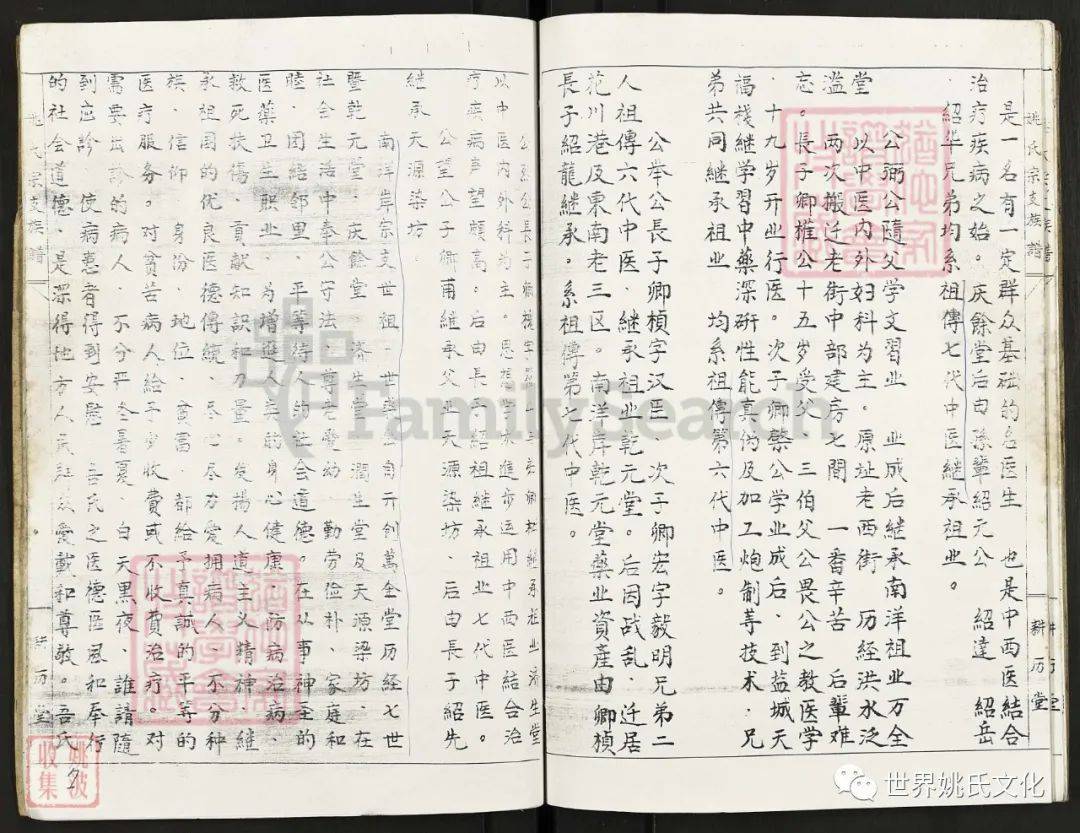 是一名有一定群众基础的名医生 也是中西医结合
治疗疾病之始。庆餘堂后由孫輩紹元公 紹達 紹岳
、紹华兄弟均系祖傳七代中医継承祖业。
公弼公隨父学文習业 业成后継承南洋祖业万全
堂 以中医内外妇科为主。原址老西街 历经洪水泛
滥 两次搬迁老街中部建房七間 一番辛苦 后輩难
忘。長子卿權公十五岁受父 三伯父公畏公之教医学
、十九岁开业行医。次子卿棨公学业成后、到盐城天
福栈継学習中藥深研性能真伪及加工炮制等技术、兄
弟共同継承祖业 均系祖傳第六代中医。
公举公長子卿楨字汉臣、次子卿宏字毅明兄弟二
人祖傳六代中医、継承祖业乾元堂。后因战乱、迁居
花川港及東南老三区。南洋岸乾元堂藥业資產由卿楨
長子紹龍継承。系祖傳第七代中医。
以中医内外科为主。思想 進步运用中西医結合治
疗疾病声望頗高。后由長子紹祖継承祖业七代中医。
公望公子卿甫継承父业天源染坊、后由長子紹先
継承天源染坊。
南洋岸宗支世祖一世 自开創萬全堂历经七世
暨乾元堂、庆餘堂、济生堂、潤生堂及天源梁坊、在
社会生活中奉公守法、尊老愛幼、勤劳俭朴、家庭和
睦、团结邻里、平等待人的社会道德。在从事神圣的
医藥卫生职业、为增進人类的身心健康、防病治病、
救死扶傷、貢献知識和力量。发揚人道主义精神、継
承祖国的优良医德傳統、尽心尽力爱拥病人、不分种
族、信仰、身份、地位、貧富、都給予真誠的平等的
医疗服务。对貧苦病人給予少收費或不收費治疗、对
需要出診的病人、不分严冬暑夏、白天黑夜、誰請隨
到应診、使病患者得到安慰、吾氏之医德医風和奉行
的社会道德、是深得地方人民 愛戴和尊敬。吾氏
姚氏宗支族譜
耕历堂
姚氏宗支族譜
耕历堂
FamilySearch
姚波
收集
2
世界姚氏文化